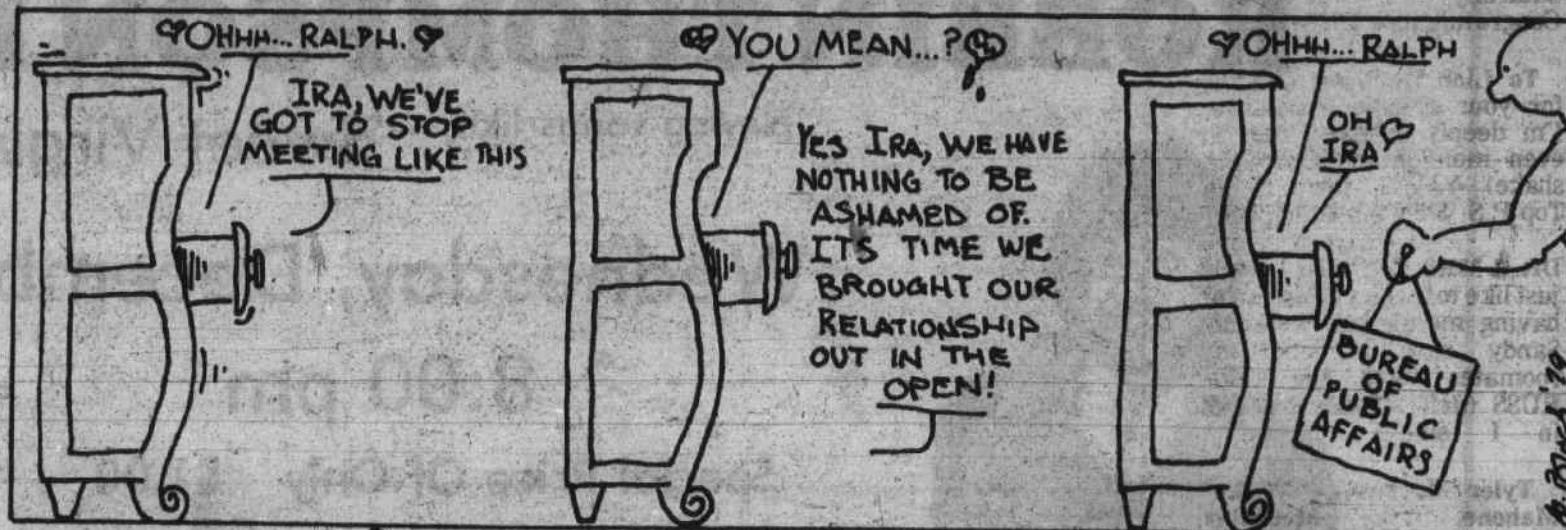 OHHH... RALPH.
IRA, WE'VE
GOT TO STOP
MEETING LIKE THIS
YOU MEAN...?
YES IRA, WE HAVE
NOTHING TO BE
ASHAMED OF.
ITS TIME WE
BROUGHT OUR
RELATIONSHIP
OUT IN THE
OPEN!
OHHH... RALPH
OH
IRA
BUREAU
OF
PUBLIC
AFFAIRS
8:00 pm